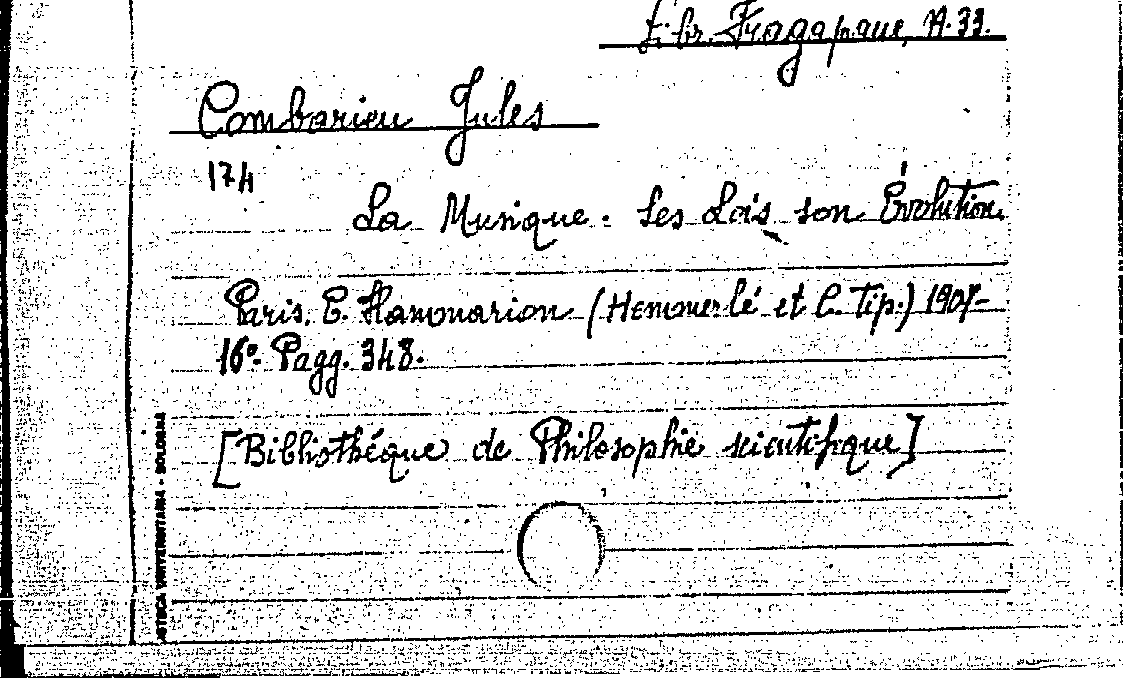 Libr. Fragapane, A. 33.
Combarieu Jules
174
La Musique. Ses Lois son Évolution.
Paris. E. Flammarion (Hemmerlé et C. tip.) 1907-
16º. Pagg. 348.
[Bibliothéque de Philosophie scientifique]
STECA UNIVERSITARIA - BOLOGNA